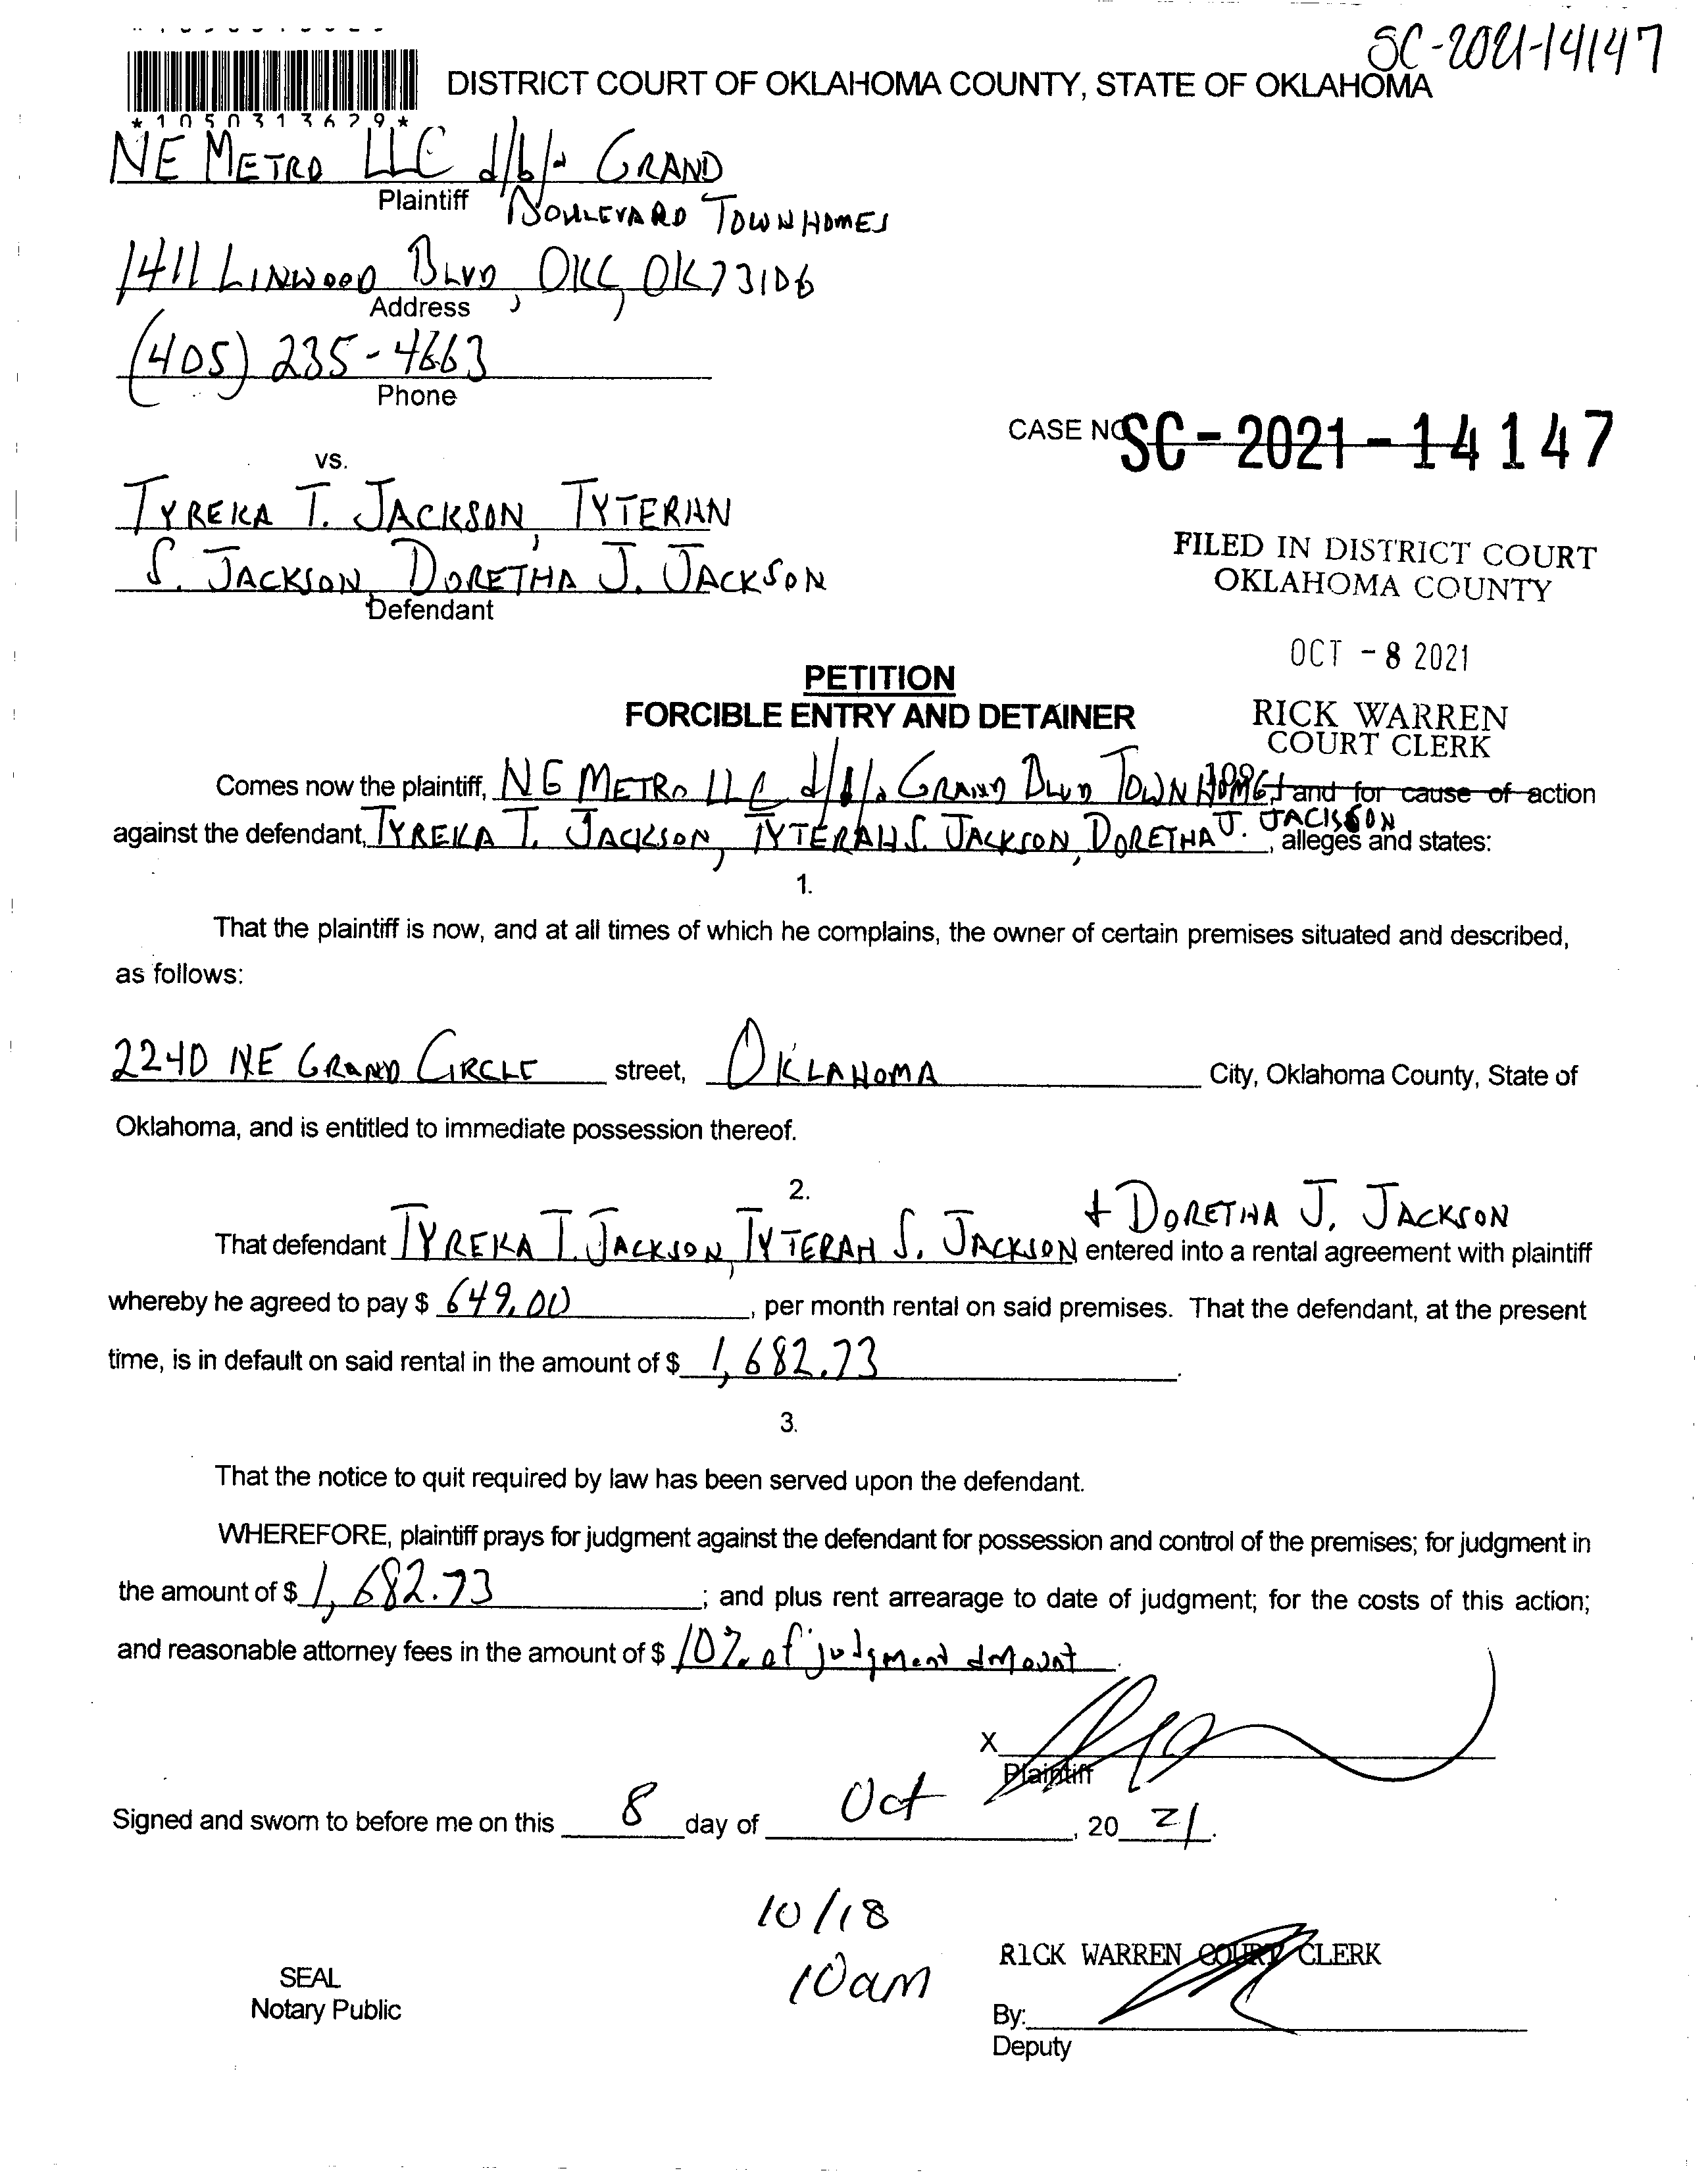 SC-2021-14147
DISTRICT COURT OF OKLAHOMA COUNTY, STATE OF OKLAHOMA
*1050313629*
NE METRO LLC d/b/a GRAND
Plaintiff
BOULEVARD TOWNHOMES
1411 LINWOOD BLVD, OKC, OK 73106
Address
(405) 235-4663
Phone
CASE NO
SC-2021-14147
vs.
TYREKA T. JACKSON, TYTERAH
S. JACKSON, DORETHA J. JACKSON
Defendant
FILED IN DISTRICT COURT
OKLAHOMA COUNTY
OCT -8 2021
RICK WARREN
COURT CLERK
109
PETITION
FORCIBLE ENTRY AND DETAINER
Comes now the plaintiff, NE METRO LLC d/b/a GRAND BLVD TOWNHOMES, and for cause of action
against the defendant, TYREKA T. JACKSON, TYTERAH S. JACKSON, DORETHA J. JACKSON, alleges and states:
1.
That the plaintiff is now, and at all times of which he complains, the owner of certain premises situated and described,
as follows:
2240 NE GRAND CIRCLE street, OKLAHOMA City, Oklahoma County, State of
Oklahoma, and is entitled to immediate possession thereof.
2.
That defendant TYREKA T. JACKSON, TYTERAH S. JACKSON + DORETHA J. JACKSON entered into a rental agreement with plaintiff
whereby he agreed to pay $ 649.00, per month rental on said premises. That the defendant, at the present
time, is in default on said rental in the amount of $ 1,682.73.
3.
That the notice to quit required by law has been served upon the defendant.
WHEREFORE, plaintiff prays for judgment against the defendant for possession and control of the premises; for judgment in
the amount of $ 1,682.73; and plus rent arrearage to date of judgment; for the costs of this action;
and reasonable attorney fees in the amount of $ 10% of judgment amount.
X
Plaintiff
Signed and sworn to before me on this 8 day of Oct, 20 21.
10/18
10am
SEAL
Notary Public
RICK WARREN COURT CLERK
By:
Deputy